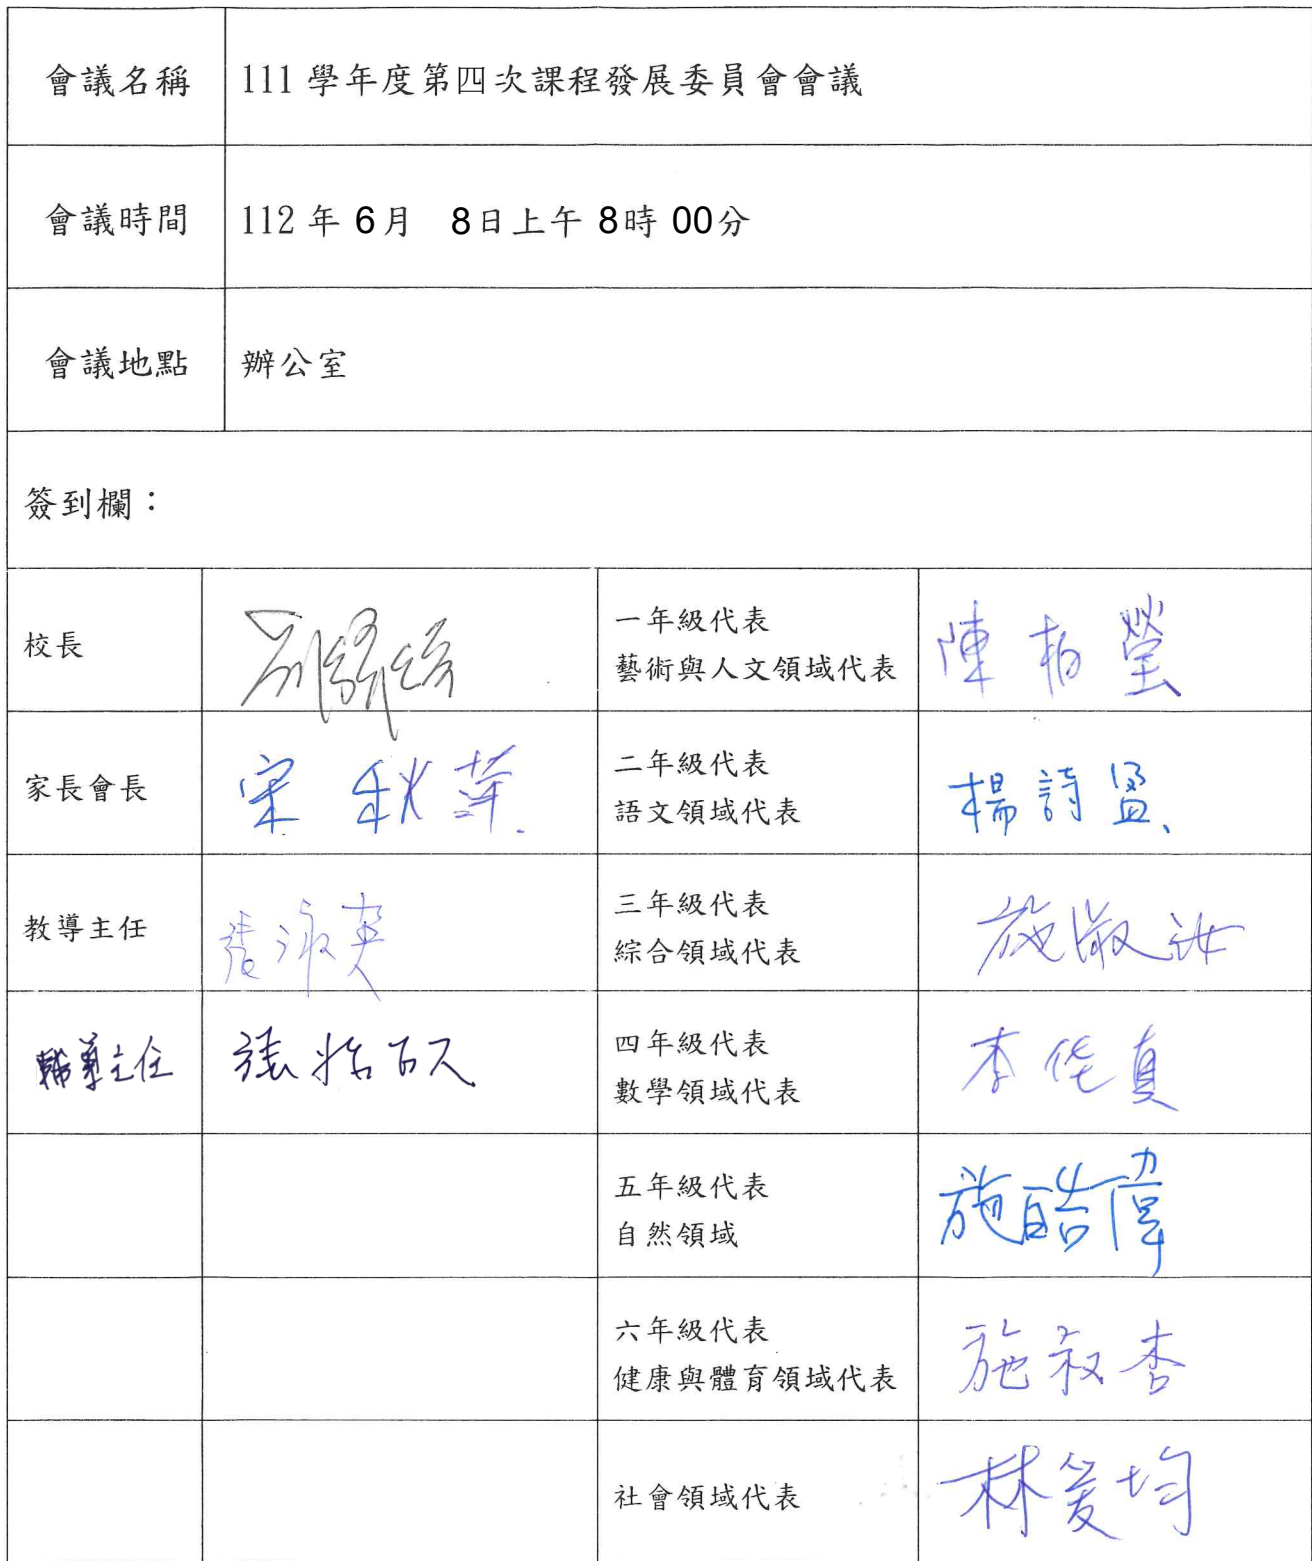 會議名稱 111 學年度第四次課程發展委員會會議
會議時間 112 年 6月 8日上午 8時 00分
會議地點 辦公室
簽到欄：
校長
一年級代表
藝術與人文領域代表 陳柏瑩
家長會長 宋秋萍
二年級代表
語文領域代表 楊詩盈、
教導主任 張淑英
三年級代表
綜合領域代表 施淑汝
輔導主任 張
四年級代表
數學領域代表 李佳真
五年級代表
自然領域 施皓偉
六年級代表
健康與體育領域代表 施叔杏
社會領域代表 林爰均